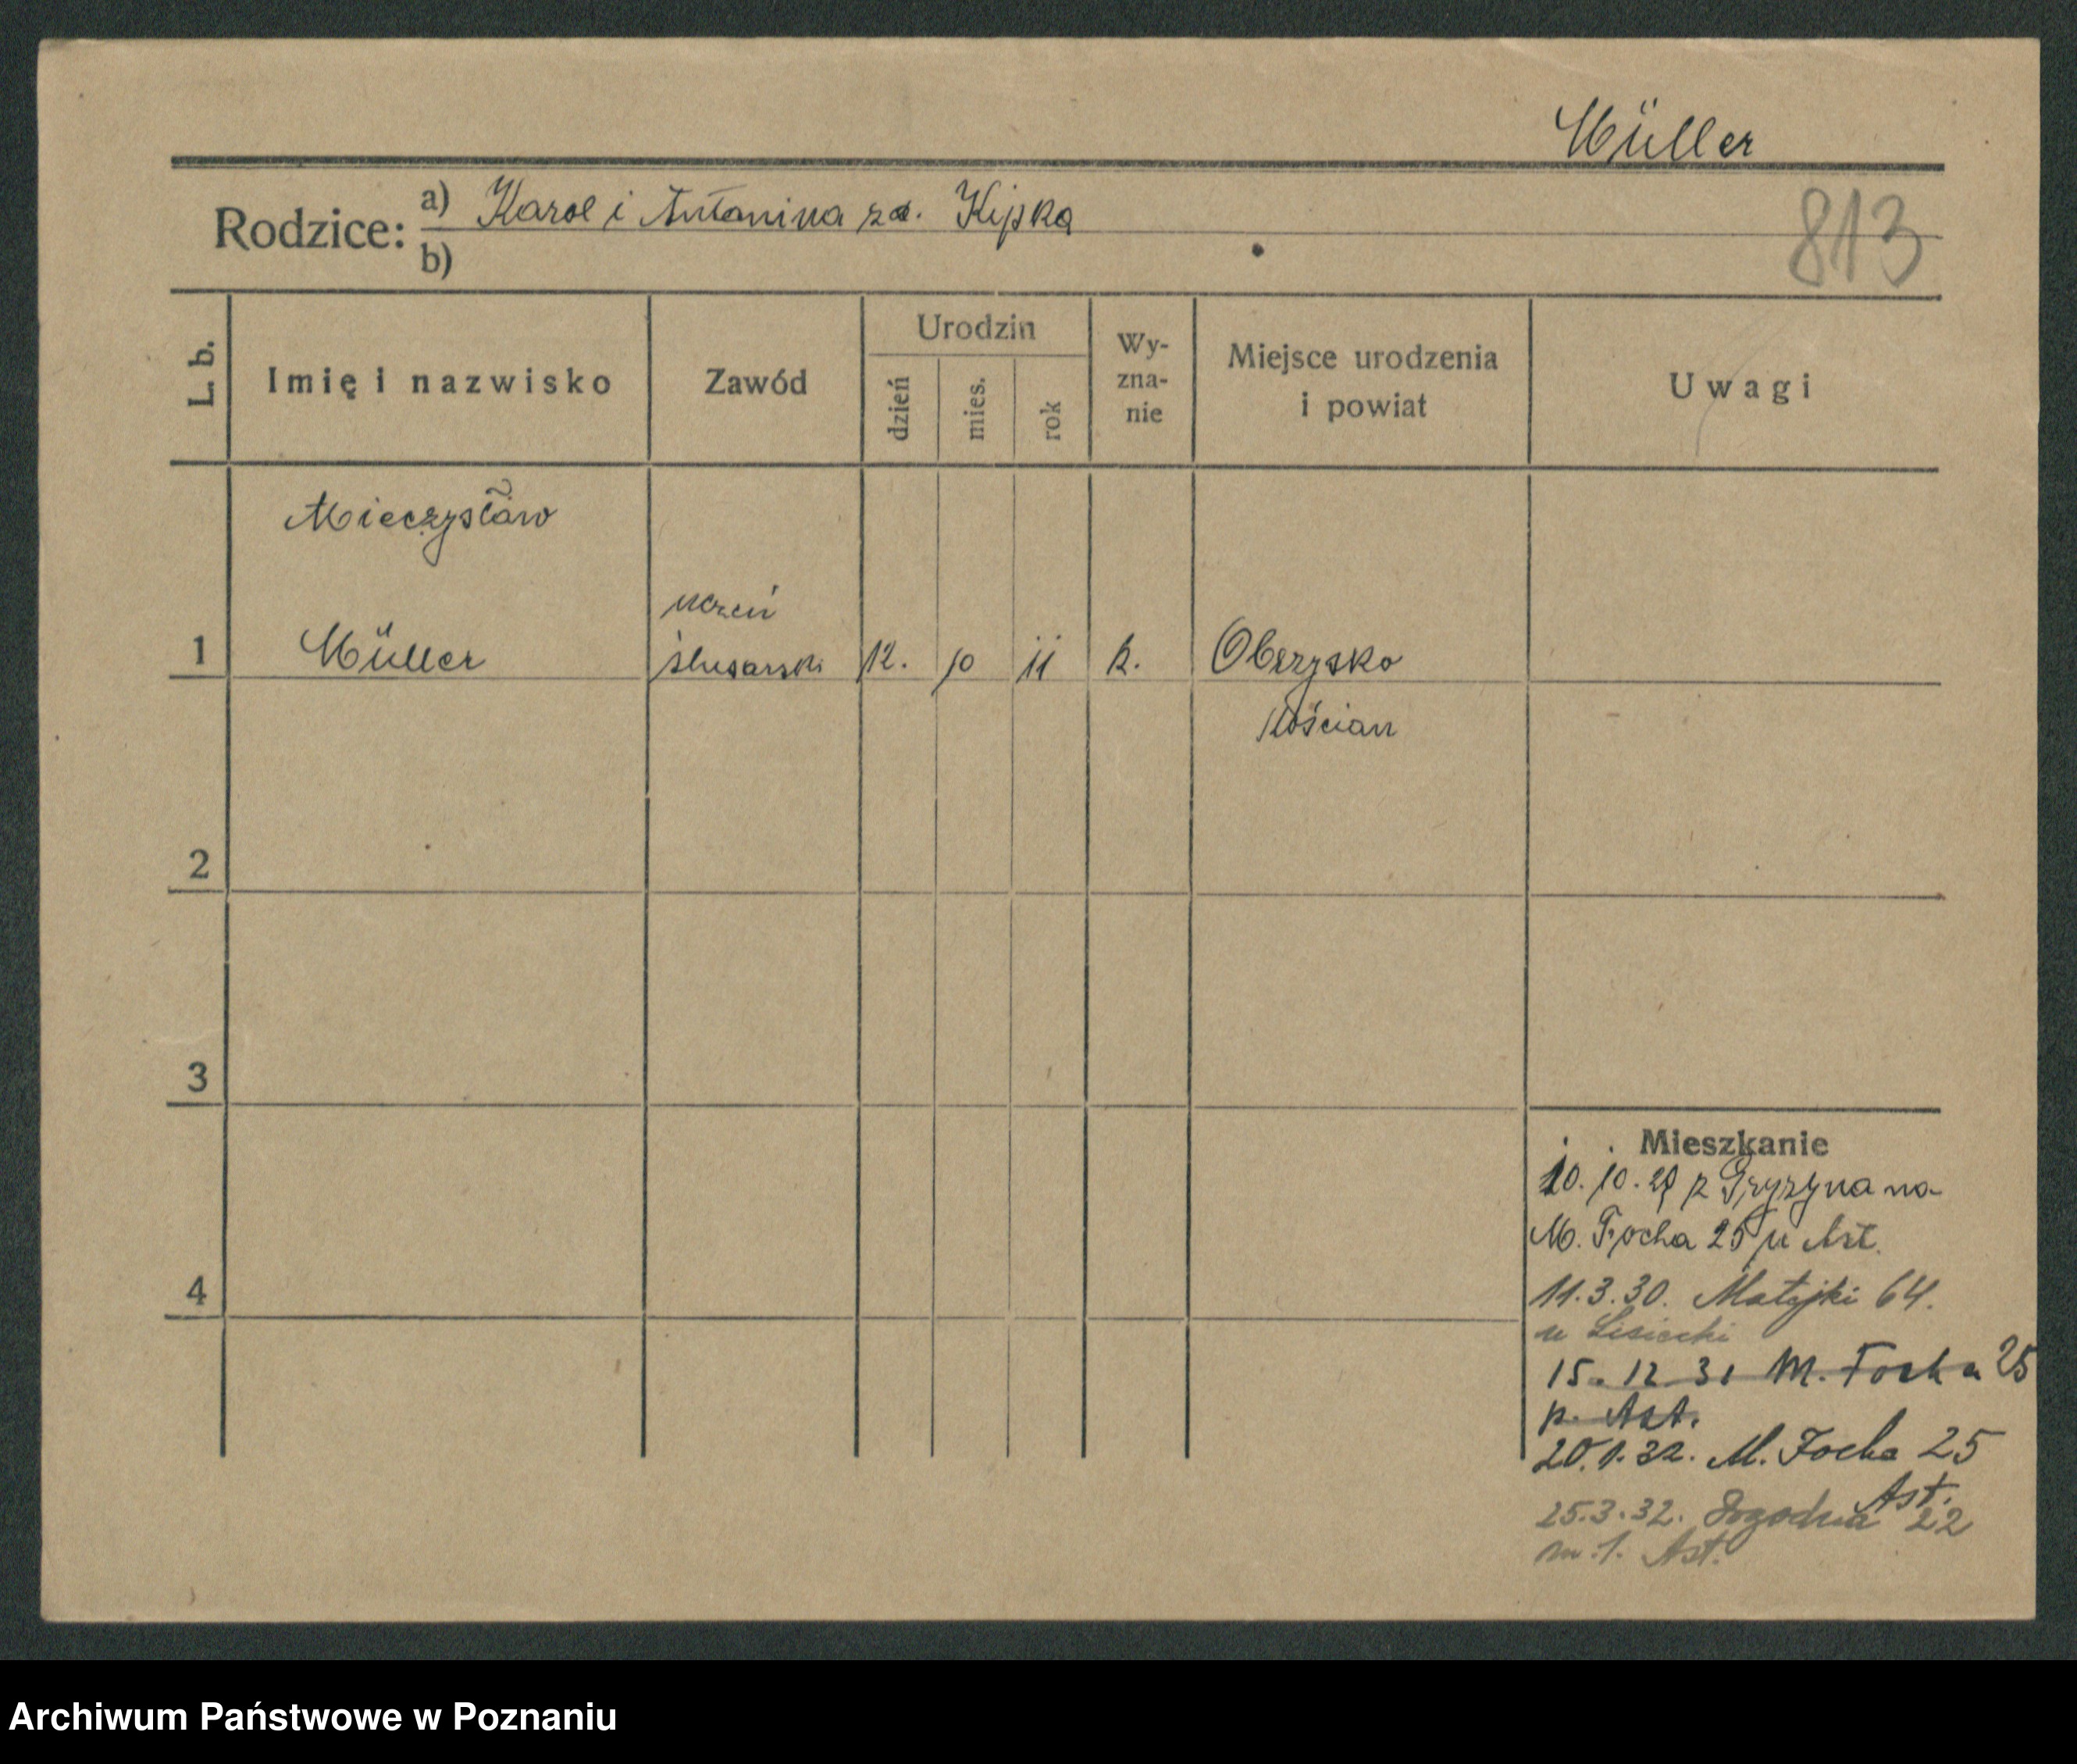 Müller
Rodzice: a) Karol i Antonina zd. Kipka
b)
813
L. b.
Imię i nazwisko
Zawód
Urodzin
dzień
mies.
rok
Wy-
zna-
nie
Miejsce urodzenia
i powiat
Uwagi
Mieczysław
uczeń
1 Müller ślusarski 12. 10 11 k. Obrzysko
Kościan
2
3
4
Mieszkanie
10. 10. 29 z Gryzyna na
M. Focha 25 u Ast.
11.3.30. Matejki 64.
u Lisiecki
15. 12 31 M. Focha 25
p. Ast.
20.1.32. M. Focha 25
Ast.
25.3.32. 22
m. 1. Ast.
Archiwum Państwowe w Poznaniu